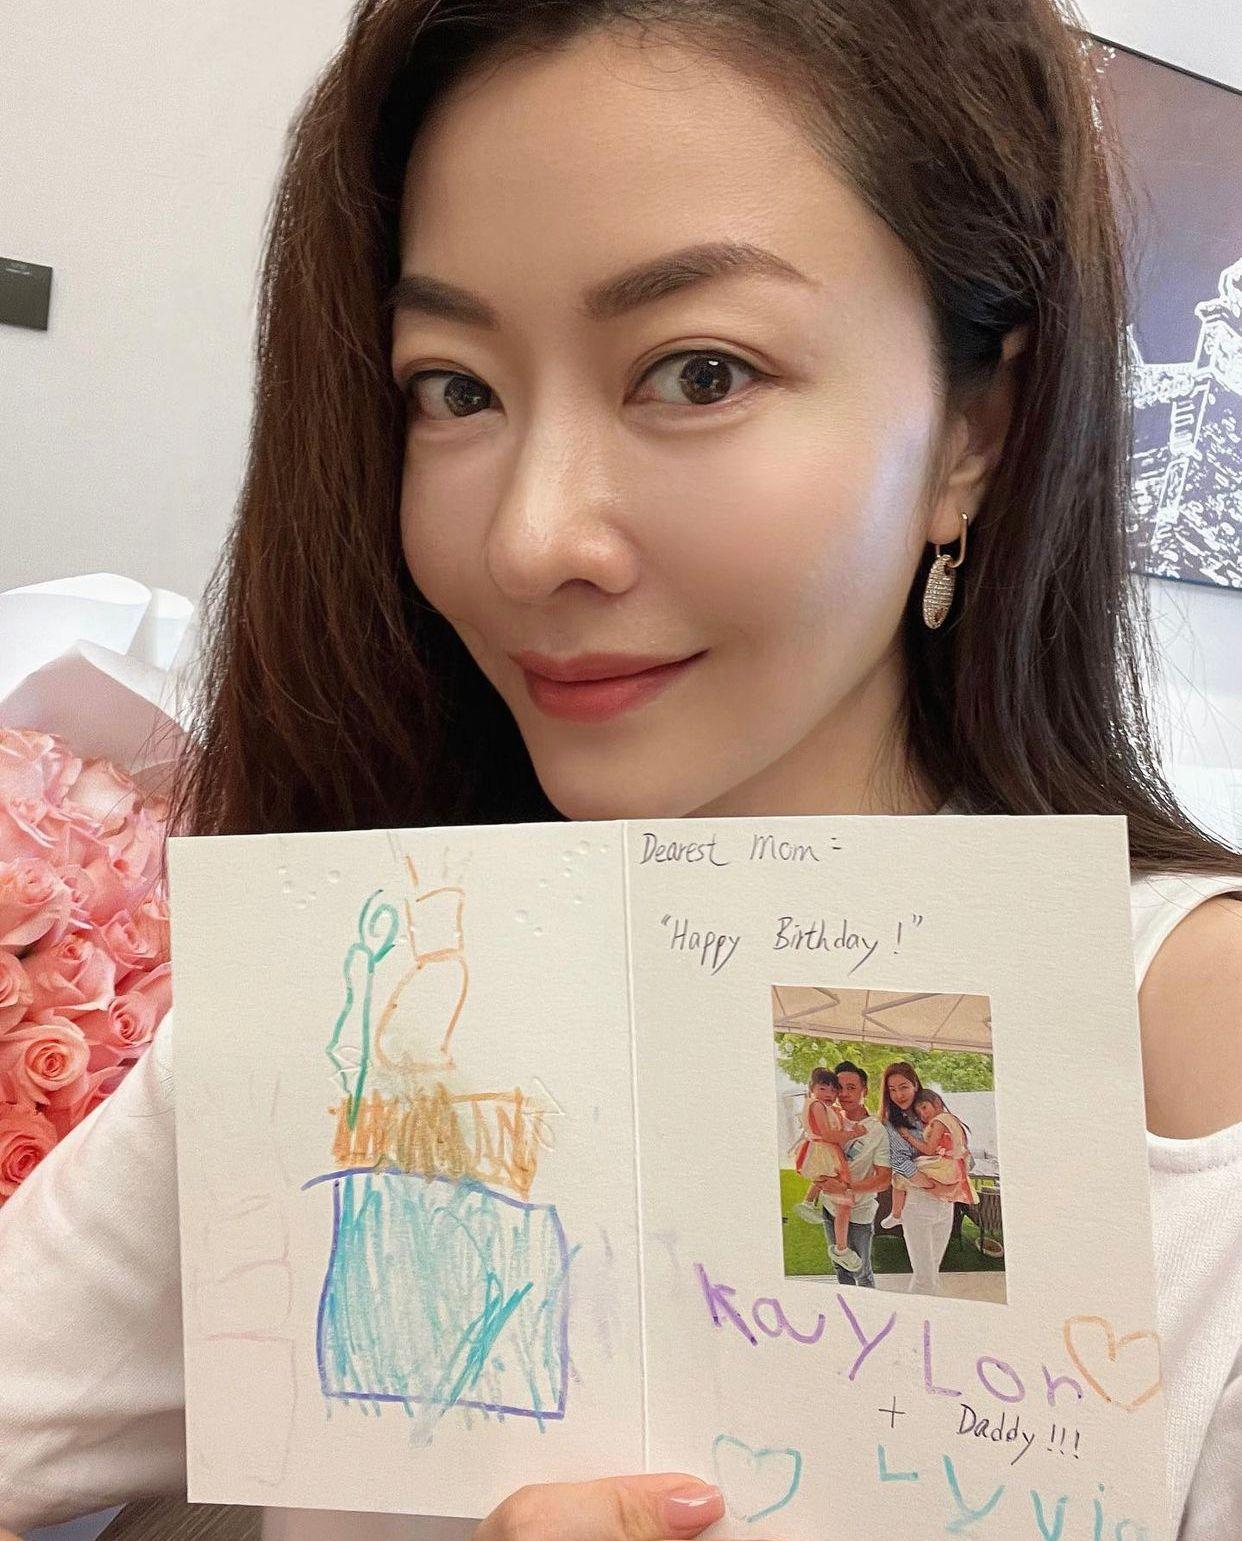 Dearest Mom:
"Happy Birthday!"
KayLon
+ Daddy!!!
Lyvia